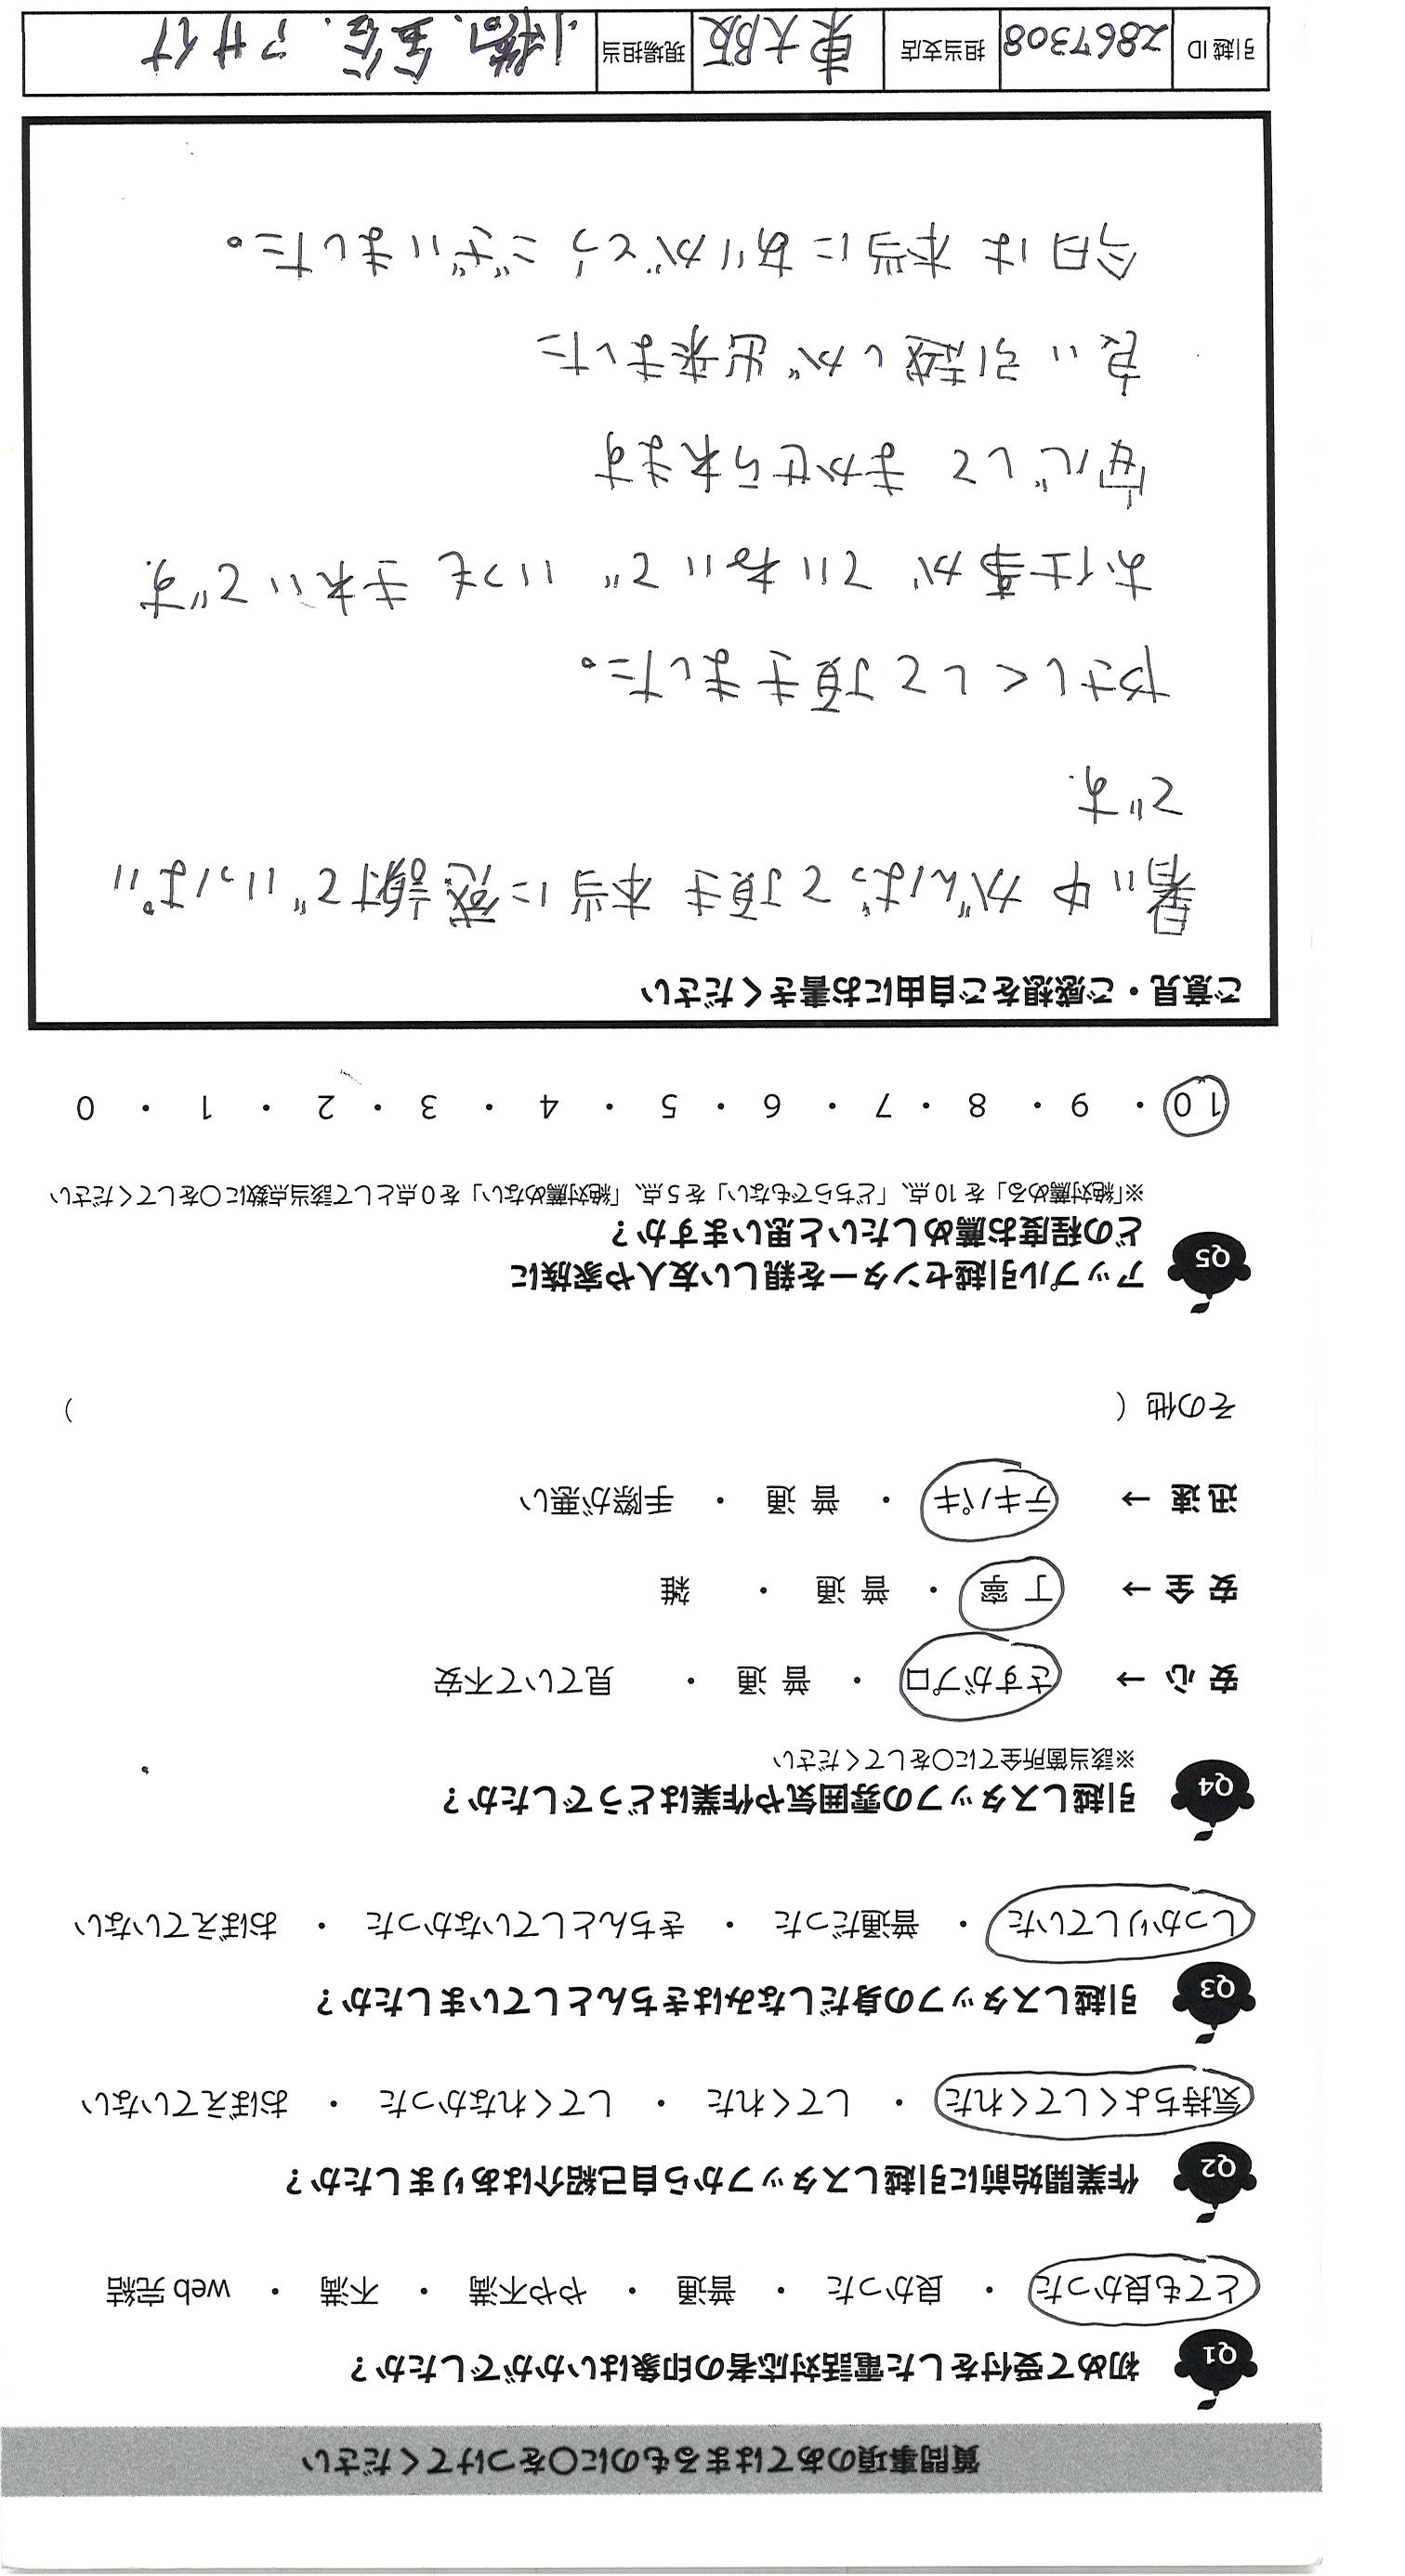 質問事項のあてはまるものに○をつけてください
Q1 初めて受付をした電話対応者の印象はいかがでしたか？
とても良かった ・ 良かった ・ 普通 ・ やや不満 ・ 不満 ・ web 完結
Q2 作業開始前に引越しスタッフから自己紹介はありましたか？
気持ちよくしてくれた ・ してくれた ・ してくれなかった ・ おぼえていない
Q3 引越しスタッフの身だしなみはきちんとしていましたか？
しっかりしていた ・ 普通だった ・ きちんとしていなかった ・ おぼえていない
Q4 引越しスタッフの雰囲気や作業はどうでしたか？
※該当箇所全てに○をしてください
安 心 → さすがプロ ・ 普 通 ・ 見ていて不安
安 全 → 丁 寧 ・ 普 通 ・ 雑
迅 速 → テキパキ ・ 普 通 ・ 手際が悪い
その他（ ）
Q5 アップル引越センターを親しい友人や家族に
どの程度お薦めしたいと思いますか？
※「絶対薦める」を 10 点、「どちらでもない」を 5 点、「絶対薦めない」を 0 点として該当点数に○をしてください
10 ・ 9 ・ 8 ・ 7 ・ 6 ・ 5 ・ 4 ・ 3 ・ 2 ・ 1 ・ 0
ご意見・ご感想をご自由にお書きください
暑い中 がんばって頂き 本当に感謝で いっぱい
です.
やさしくして頂きました。
お仕事が ていねいで いつも きれいです.
安心して まかせられます
良い引越しが出来ました
今日は 本当にありがとうございました。
引越 ID 2867308 担当支店 東大阪 現場担当 小橋、 アサイ